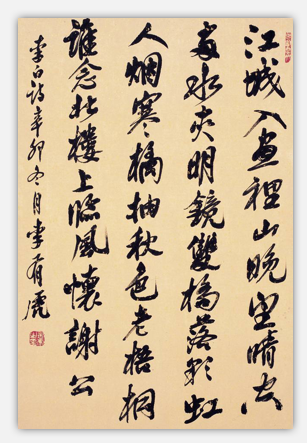 江城入画裡山晚望晴空
两水夾明鏡雙橋落彩虹
人烟寒橘柚秋色老梧桐
誰念北樓上臨風懷謝公
李白詩辛卯冬月李有